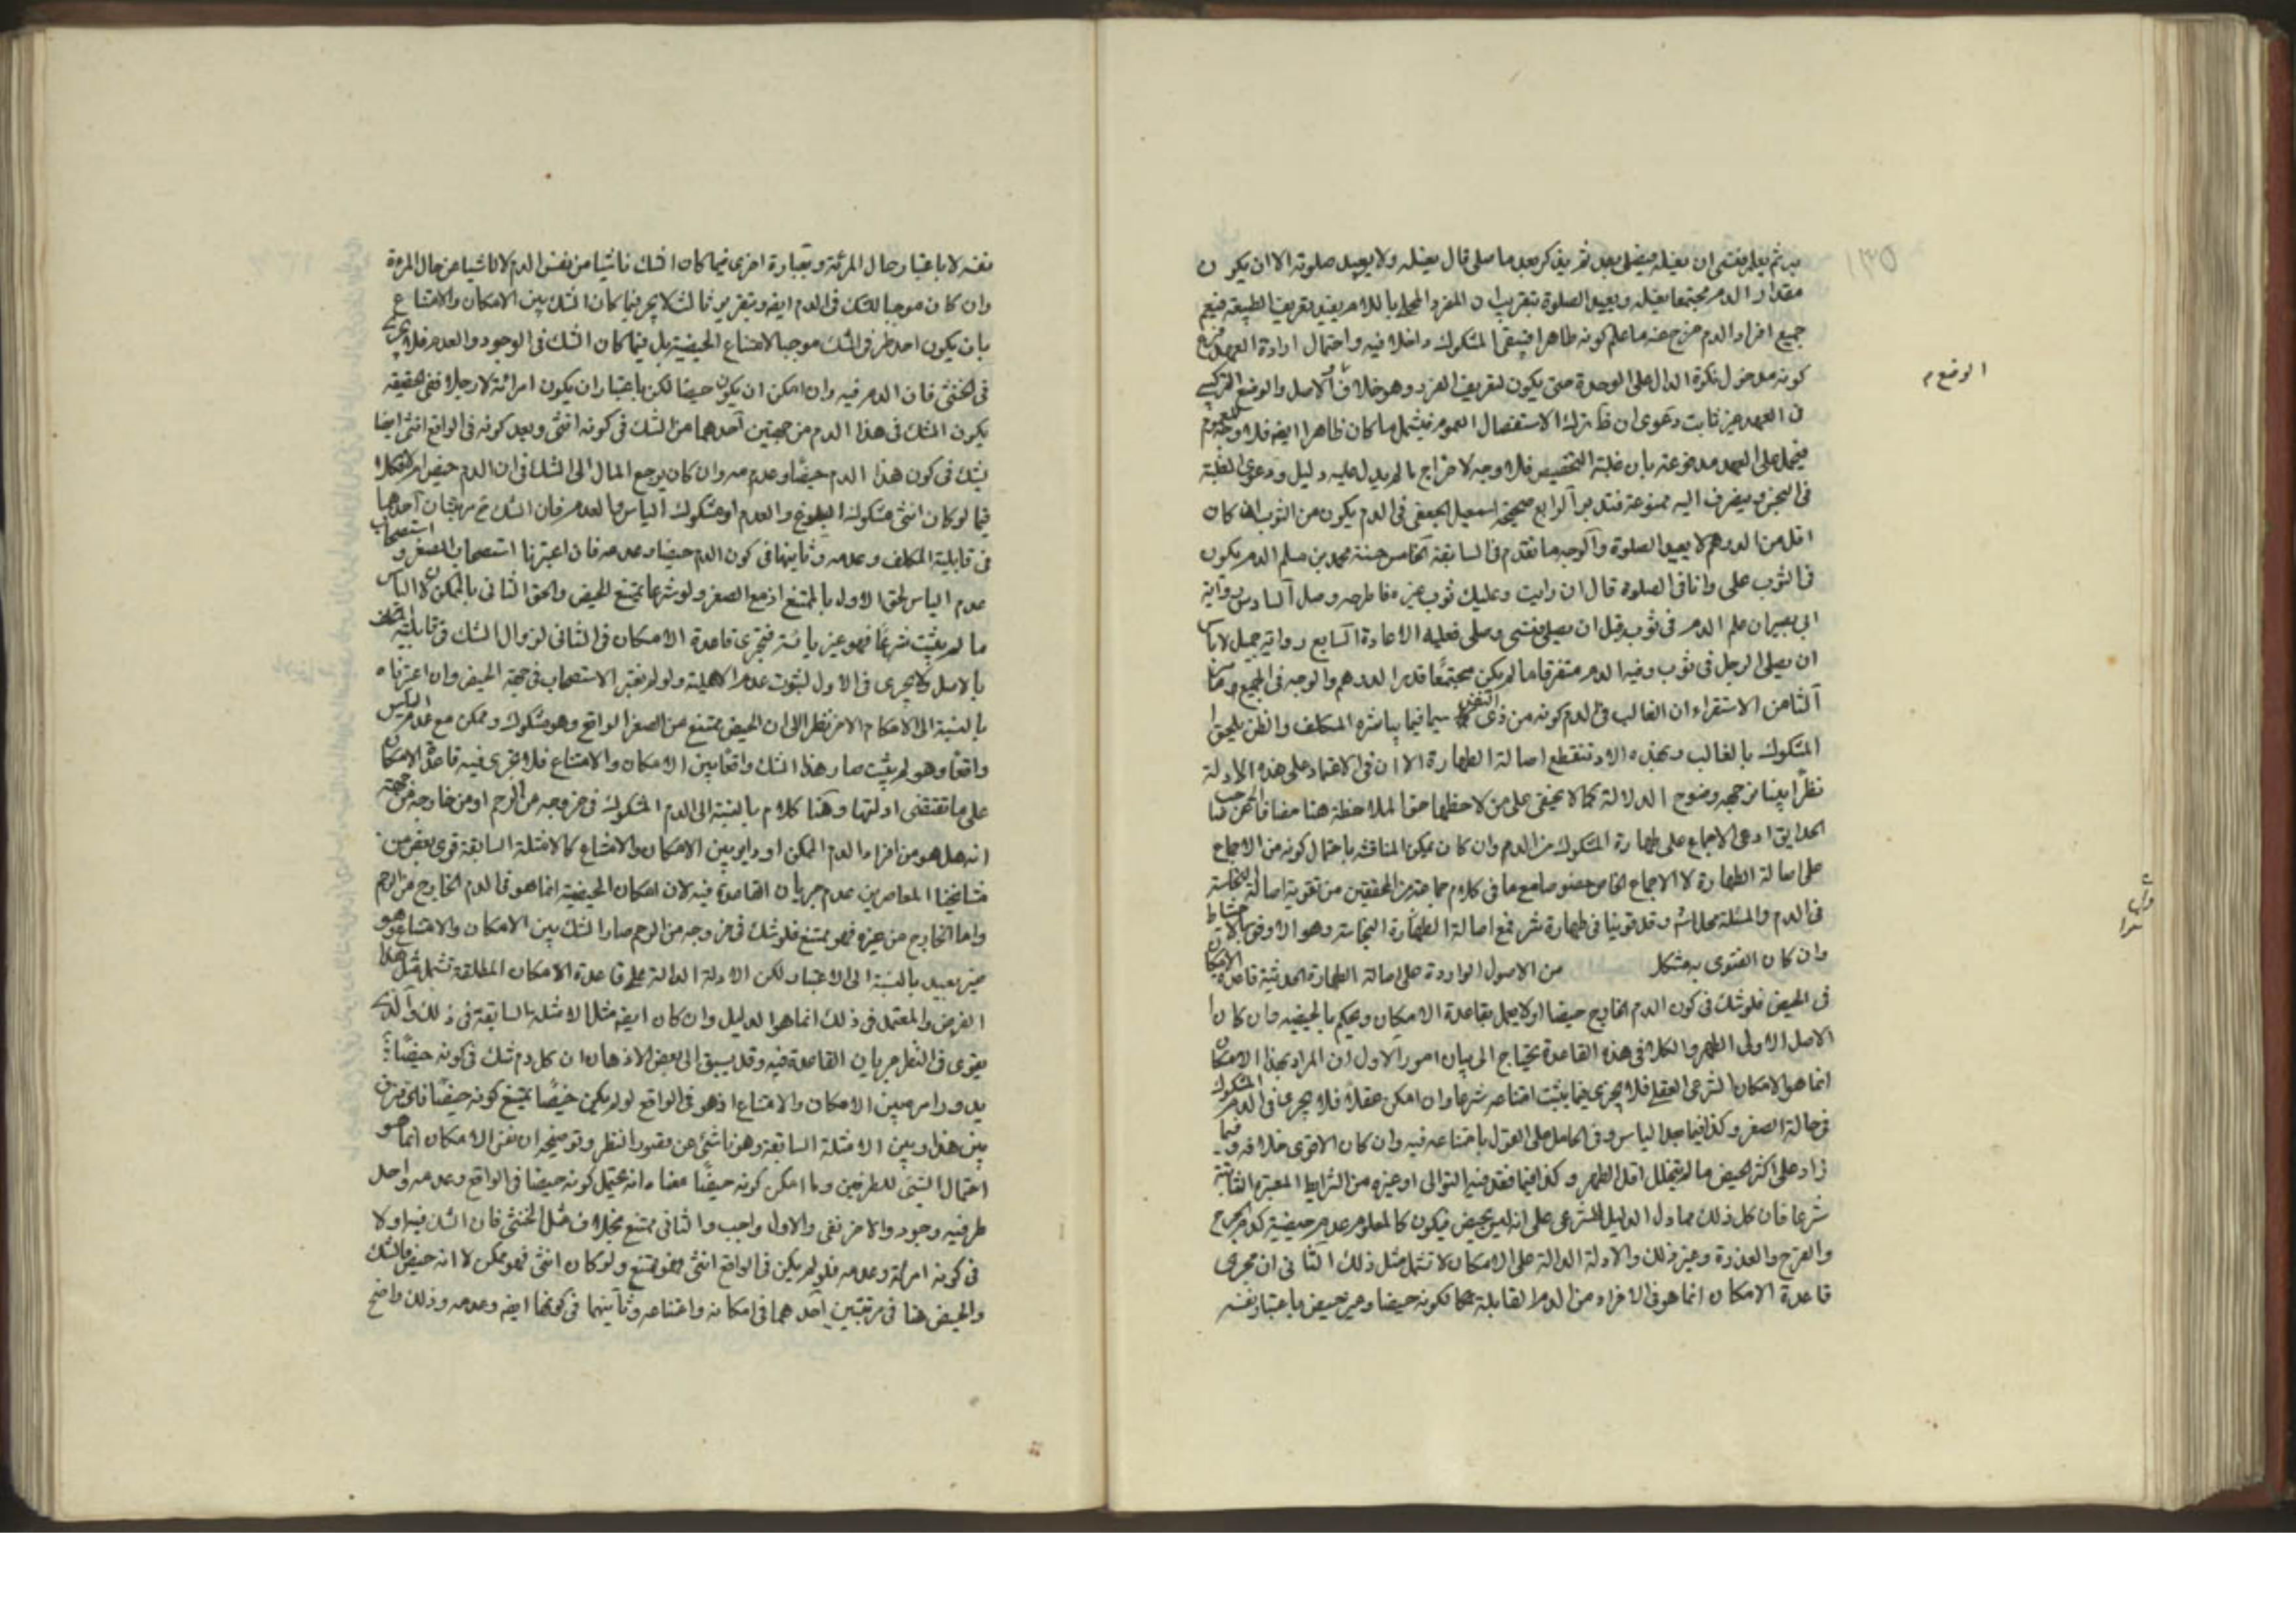 به ثم يعلم فينسى ان يغسله فيصلى بعد ثم يذكر بعد ما صلى قال يغسله ولا يعيد صلوته الا ان يكون
مقدار الدرهم مجتمعا فيغسله ويعيد الصلوة بتقريب ان المفرد المحلى باللام يفيد تعريف الطبيعة فيعم
جميع افراد الدم خرج عنه ما علم كونه طاهرا فيبقى المشكوك داخلا فيه واحتمال ارادة العهد
كونه مدخول نكرة الدال على الوحدة حتى يكون لتعريف الفرد وهو خلاف الاصل والوضع التركيبى
فى العهد غير ثابت دعوى ان ترك الاستفصال العموم فيشمل ما كان ظاهرا ايضه فلا وجه
فيحمل على العهد مدفوعة بان غلبة التخصيص فلا وجه لاخراج ما لم يدل عليه دليل ودعوى الغلبة
فى النجس فيصرف اليه ممنوعة فتدبر الرابع صحيحة اسمعيل الجعفى فى الدم يكون من الثوب ان كان
اقل من الدرهم لا يعيد الصلوة والوجه ما تقدم فى السابقة الخامس حسنة محمد بن مسلم الدم يكون
فى الثوب على وانا فى الصلوة قال ان رايت وعليك ثوب غيره فاطرحه وصل السادس رواية
ابى بصير ان علم الدم فى ثوبه قبل ان يصلى فنسى وصلى فعليه الاعادة السابع رواية جميل لا باس
ان يصلى الرجل فى ثوب وفيه الدم متفرقا ما لم يكن مجتمعا قدر الدرهم والوجه فى الجميع ما مر
الثامن الاستقراء ان الغالب فى الدم كونه من ذى النفس سيما فيما يباشره المكلف والظن يلحق
المشكوك بالغالب وبهذه الاد تنقطع اصالة الطهارة الا ان فى الاعتماد على هذه الادلة
نظرا بينا من جهة وضوح الدلالة كما لا يخفى على من لاحظها حق الملاحظة هنا مضافا الى ان صاحب
الحدايق ادعى الاجماع على طهارة المشكوك من الدم وان كان يمكن المناقشة باحتمال كونه من الاجماع
على اصالة الطهارة لا الاجماع الخاص خصوصا مع ما فى كلام جماعة من المحققين من تقوية اصالة النجاسة
فى الدم والمسئلة محل اشكال وقد قوينا فى طهارة شرفمع اصالة الطهارة النجاسة وهو الاوفق بالاحتياط
وان كان الفتوى به مشكل من الاصول الواردة على اصالة الطهارة الحدثية قاعدة الامكان
فى الحيض فلو شك فى كون الدم الخارج حيضا اولا يعمل بقاعدة الامكان ويحكم بالحيضية وان كان
الاصل الاولى الطهر والكلام فى هذه القاعدة يحتاج الى بيان امور الاول ان المراد بهذا الامكان
انما هو الامكان الشرعى العقلى فلا يجرى فيما يثبت امتناعه شرعا وان امكن عقلا فلا يجرى فى الدم المشكوك
فى حالة الصغر وكذا فيما بعد الياس وفى الحامل على القول بامتناعه فيه وان كان الاقوى خلافه و فيما
زاد على اكثر الحيض ما لم يتخلل اقل الطهر وكذا فيما فقد فيه التوالى او غيره من الشرايط المعتبرة الثابتة
شرعا فان كل ذلك مما دل الدليل الشرعى على انه ليس بحيض فيكون كالمعلوم عدم حيضيته كدم الجرح
والقرح والعذرة وغير ذلك والادلة الدالة على الامكان لا تشمل مثل ذلك الثانى ان مجرى
قاعدة الامكان انما هو فى الافراد من الدم القابلة لكونه حيضا وغير حيض باعتبار نفسه
الوضع م
نفسه لا باعتبار حال المرئة وبعبارة اخرى فيما كان الشك ناشيا من نفس الدم لا ناشيا من حال المرءة
وان كان موجبا للشك فى الدم ايضه وبتقرير ثالث لا يجرى فيما كان الشك بين الامكان والامتناع
بان يكون احد طرفى الشك موجبا لامتناع الحيضية بل فيما كان الشك فى الوجود والعدم فلا يجرى
فى الخنثى فان الدم فيه وان امكن ان يكون حيضا لكن باعتبار ان يكون امرائة لا رجلا ففى الحقيقه
يكون الشك فى هذا الدم من جهتين احدهما من الشك فى كونه انثى وبعد كونه فى الواقع انثى ايضا
يشك فى كون هذا الدم حيضا وعدمه وان كان يرجع المال الى الشك فى ان الدم حيض ام لا وكذا
فيما لو كان انثى مشكوك البلوغ والعدم او مشكوك الياس والعدم فان الشك ح مرتبتان احدهما
فى قابلية المكلف وعدمه وثانيهما فى كون الدم حيضا وعدمه فان اعتبرنا استصحاب الصغر و استصحاب
عدم الياس لحق الاول بالممتنع اذ مع الصغر ولو شرعا يمتنع الحيض والحق الثانى بالممكن لان الياس
ما لم يثبت شرعا فهو غير يائسة فتجرى قاعدة الامكان فى الثانى لزوال الشك فى قابلية المكلف
بالاصل ولا يجرى فى الاول لثبوت عدم الاهلية ولو لم نعتبر الاستصحاب فى جهة الحيض وان اعتبرناه
بالنسبة الى الاحكام الاخر نظرا الى ان الحيض ممتنع من الصغر الواقع وهو مشكوك وممكن مع عدم الياس
واقعا وهو لم يثبت صار هذا الشك واقعا بين الامكان والامتناع فلا تجرى فيه قاعدة الامكان
على ما تقتضى ادلتها وهنا كلام بالنسبة الى الدم المشكوك فى خروجه من الرحم او من خارجه من جهة
انه هل هو من افراد الدم الممكن او داير بين الامكان والامتناع كالامثلة السابقة قوى بعض من
مشايخنا المعاصرين عدم جريان القاعدة فيه لان امكان الحيضية انما هو فى الدم الخارج من الرحم
واما الخارج من غيره فهو ممتنع فلو شك فى خروجه من الرحم صار الشك بين الامكان والامتناع وهو
غير بعيد بالنسبة الى الاعتبار لكن الادلة الدالة على قاعدة الامكان المطلقة تشمل مثل هذا
الفرض والمعتمد فى ذلك انما هو الدليل وان كان ايضه مثل الامثلة السابقة فى ذلك والذى
يقوى فى النظر جريان القاعدة فيه وقد يسبق الى بعض الاذهان ان كل دم شك فى كونه حيضا
يدور امره بين الامكان والامتناع اذ هو فى الواقع لو لم يكن حيضا يمتنع كونه حيضا فاى فرق
بين هذا وبين الامثلة السابقة وهو ناشئ عن قصور النظر وتوضيحه ان نفس الامكان انما هو
احتمال الشئ للطرفين وما امكن كونه حيضا معناه انه يحتمل كونه حيضا فى الواقع وعدمه واحد
طرفيه وجود والاخر نفى والاول واجب والثانى ممتنع بخلاف مثل الخنثى فان الشك فيه اولا
فى كونه امرئة وعدمه فلو لم يكن فى الواقع انثى فهو ممتنع ولو كان انثى فهو ممكن لا انه حيض فالشك
والحيض هنا فى مرتبتين احدهما فى امكانه وامتناعه وثانيهما فى كونها ايضه وعدمه وذلك واضح